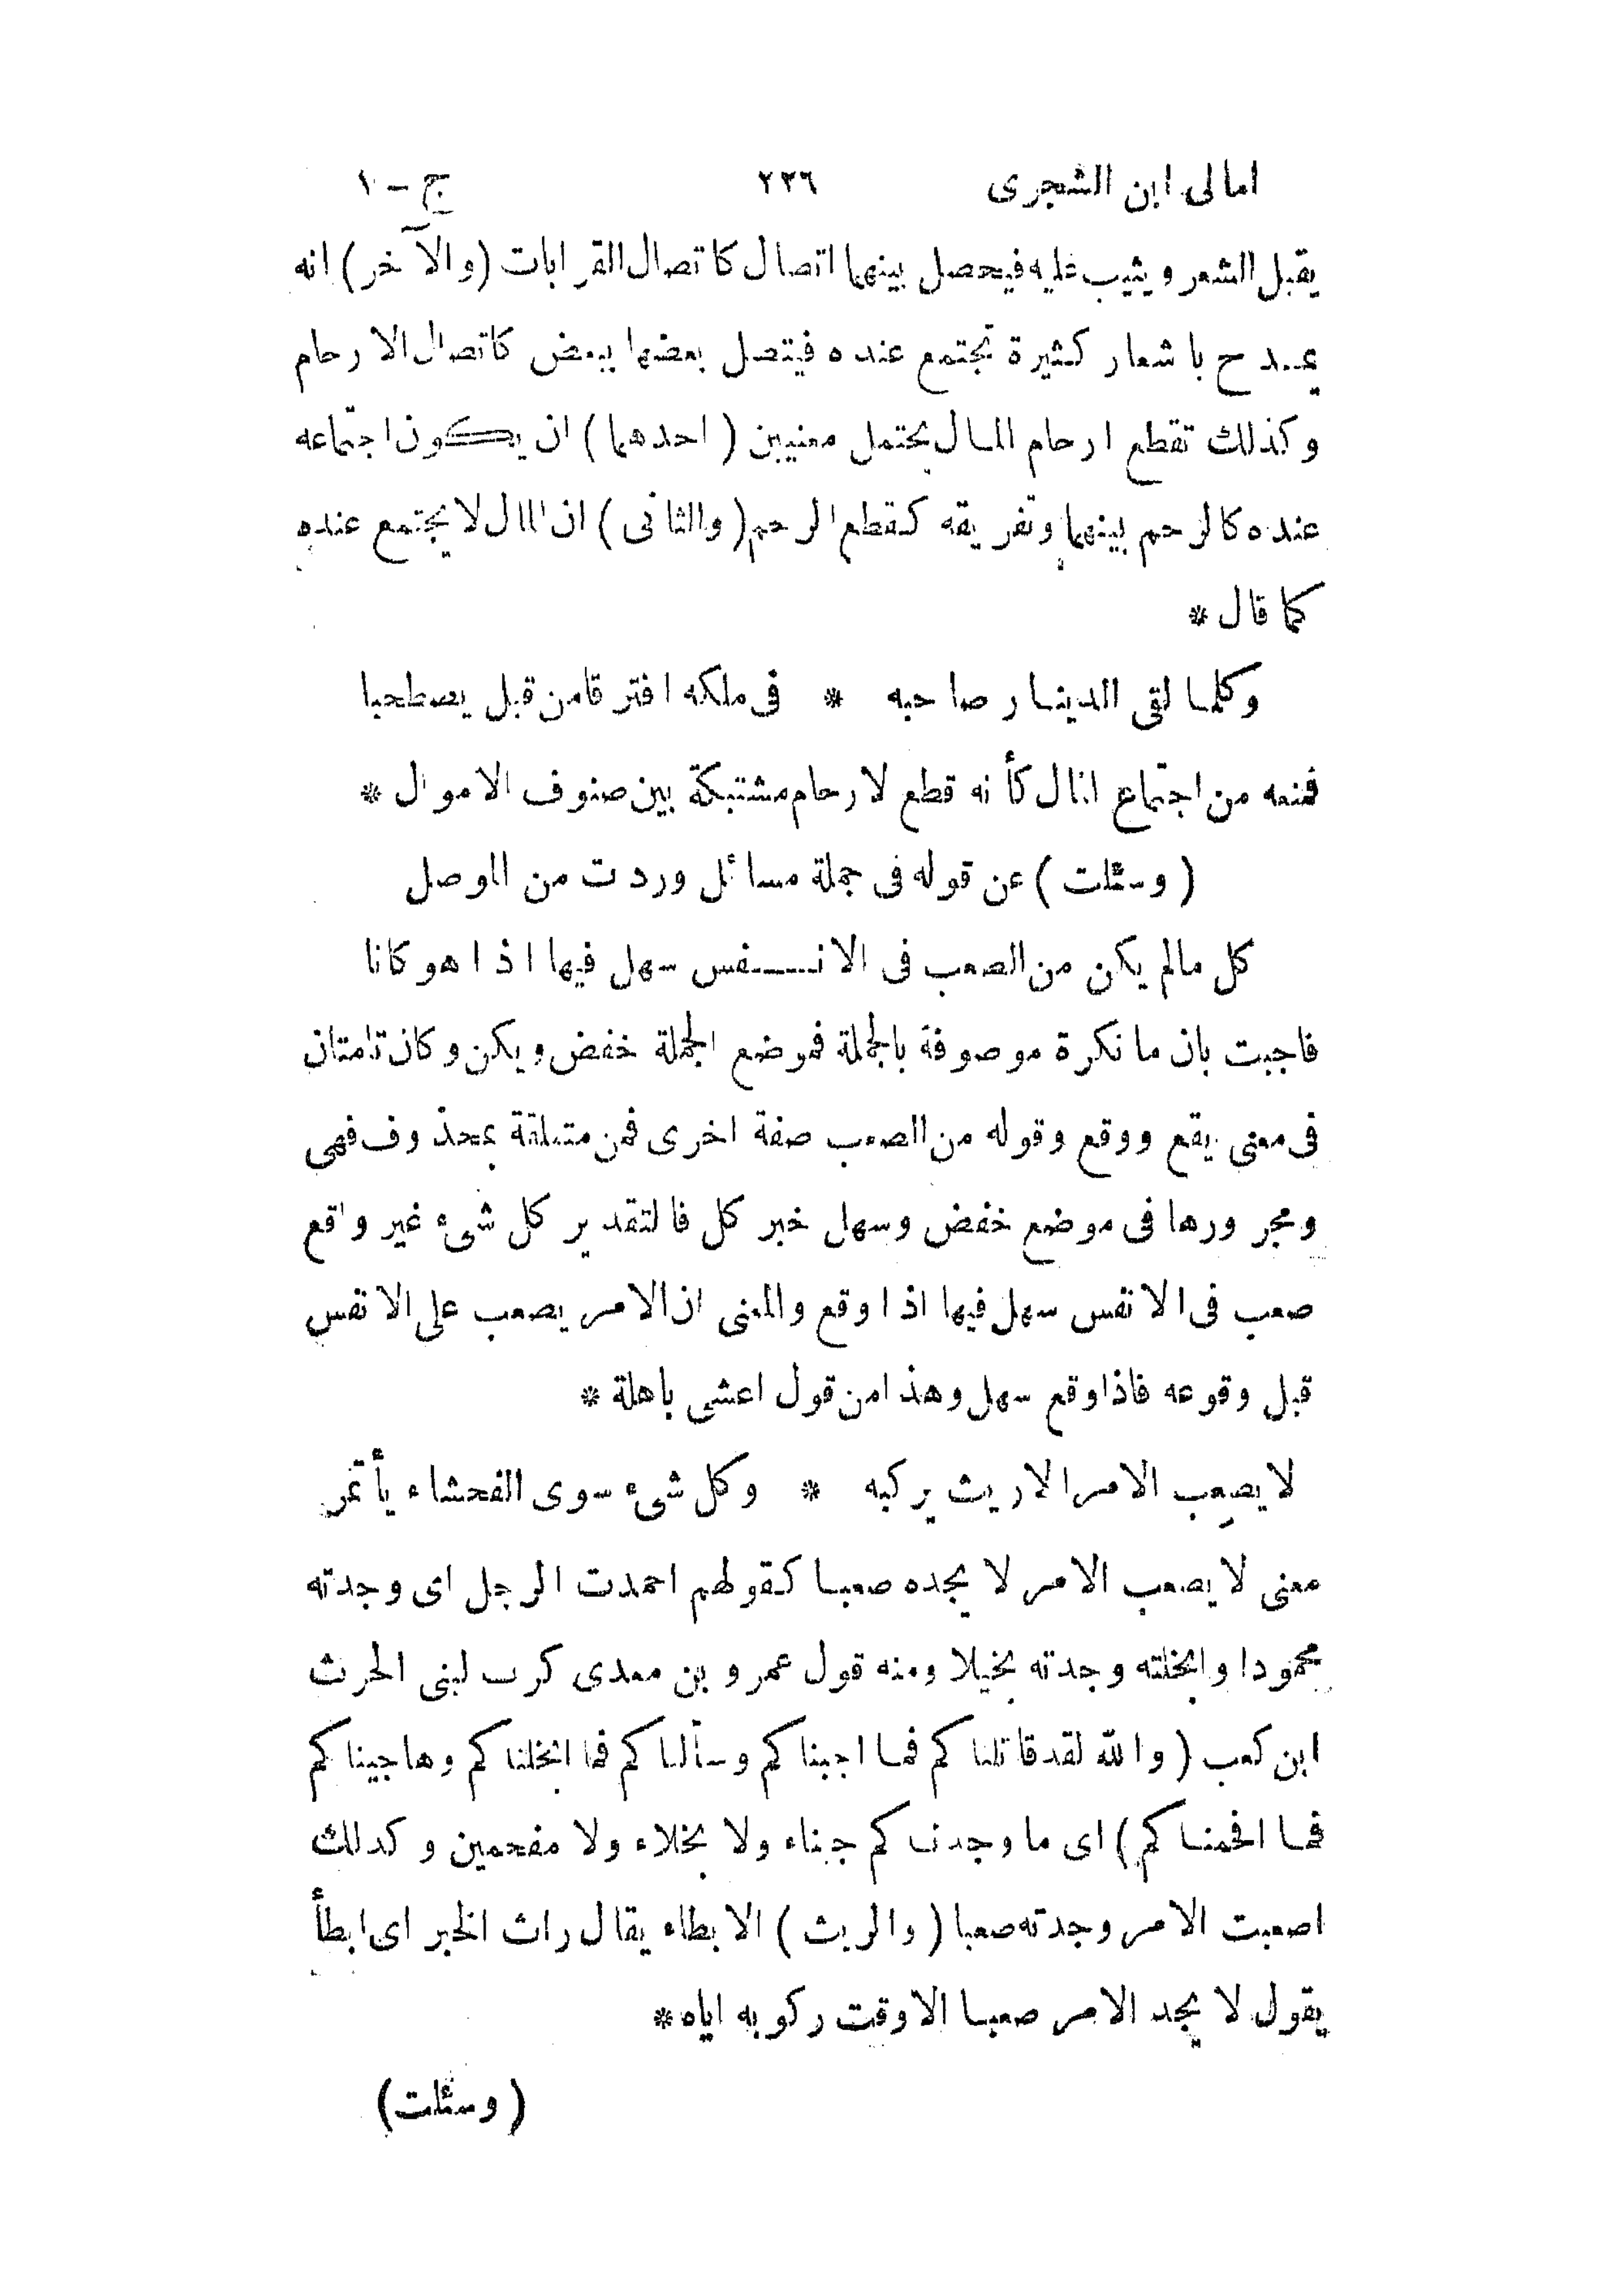 امالى ابن الشجرى ٢٣٦ ج – ١
يقبل الشعر ويثيب عليه فيحصل بينهما اتصال كاتصال القرابات (والآخر) انه
يمدح باشعار كثيرة تجتمع عنده فيتصل بعضها ببعض كاتصال الارحام
وكذلك تقطع ارحام المال يحتمل معنيين (احدهما) ان يكون اجتماعه
عنده كالرحم بينهما وتفريقه كقطع الرحم (والثانى) ان المال لا يجتمع عنده
كما قال *
وكلما لقى الدينار صاحبه * فى ملكه افترقا من قبل يصطحبا
فمنعه من اجتماع المال كأنه قطع لارحام مشتبكة بين صنوف الاموال *
(وسئلت) عن قوله فى جملة مسائل وردت من الموصل
كل مالم يكن من الصعب فى الانـــفس سهل فيها اذا هو كانا
فاجبت بان ما نكرة موصوفة بالجملة فموضع الجملة خفض ويكن وكان تامتان
فى معنى يقع ووقع وقوله من الصعب صفة اخرى فمن متعلقة بمحذوف فهى
ومجرورها فى موضع خفض وسهل خبر كل فالتقدير كل شىء غير واقع
صعب فى الانفس سهل فيها اذا وقع والمعنى ان الامر يصعب على الانفس
قبل وقوعه فاذا وقع سهل وهذا من قول اعشى باهلة *
لا يصعِب الامر الا ريث يركبه * وكل شىء سوى الفحشاء يأتمر
معنى لا يصعب الامر لا يجده صعبا كقولهم احمدت الرجل اى وجدته
محمودا وابخلته وجدته بخيلا ومنه قول عمرو بن معدى كرب لبنى الحرث
ابن كعب (والله لقد قاتلناكم فما اجبناكم وسألناكم فما ابخلناكم وهاجيناكم
فما افحمناكم) اى ما وجدناكم جبناء ولا بخلاء ولا مفحمين وكدلك
اصعبت الامر وجدته صعبا (والريث) الابطاء يقال راث الخبر اى ابطأ
يقول لا يجد الامر صعبا الا وقت ركوبه اياه *
(وسئلت)